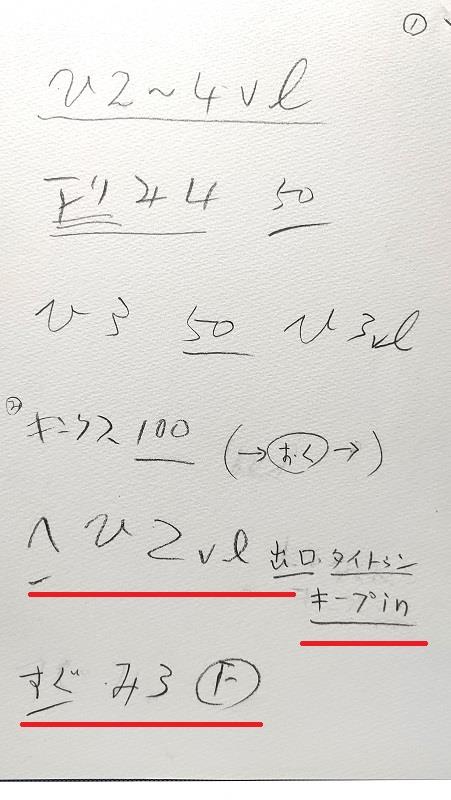 ①
ひ2～4vl
下り み4 50
ひ3 50 ひ3vl
② キンクス 100 (→おく→)
∧ ひ2vl 出口.タイトシン
キープin
すぐ.み3 下